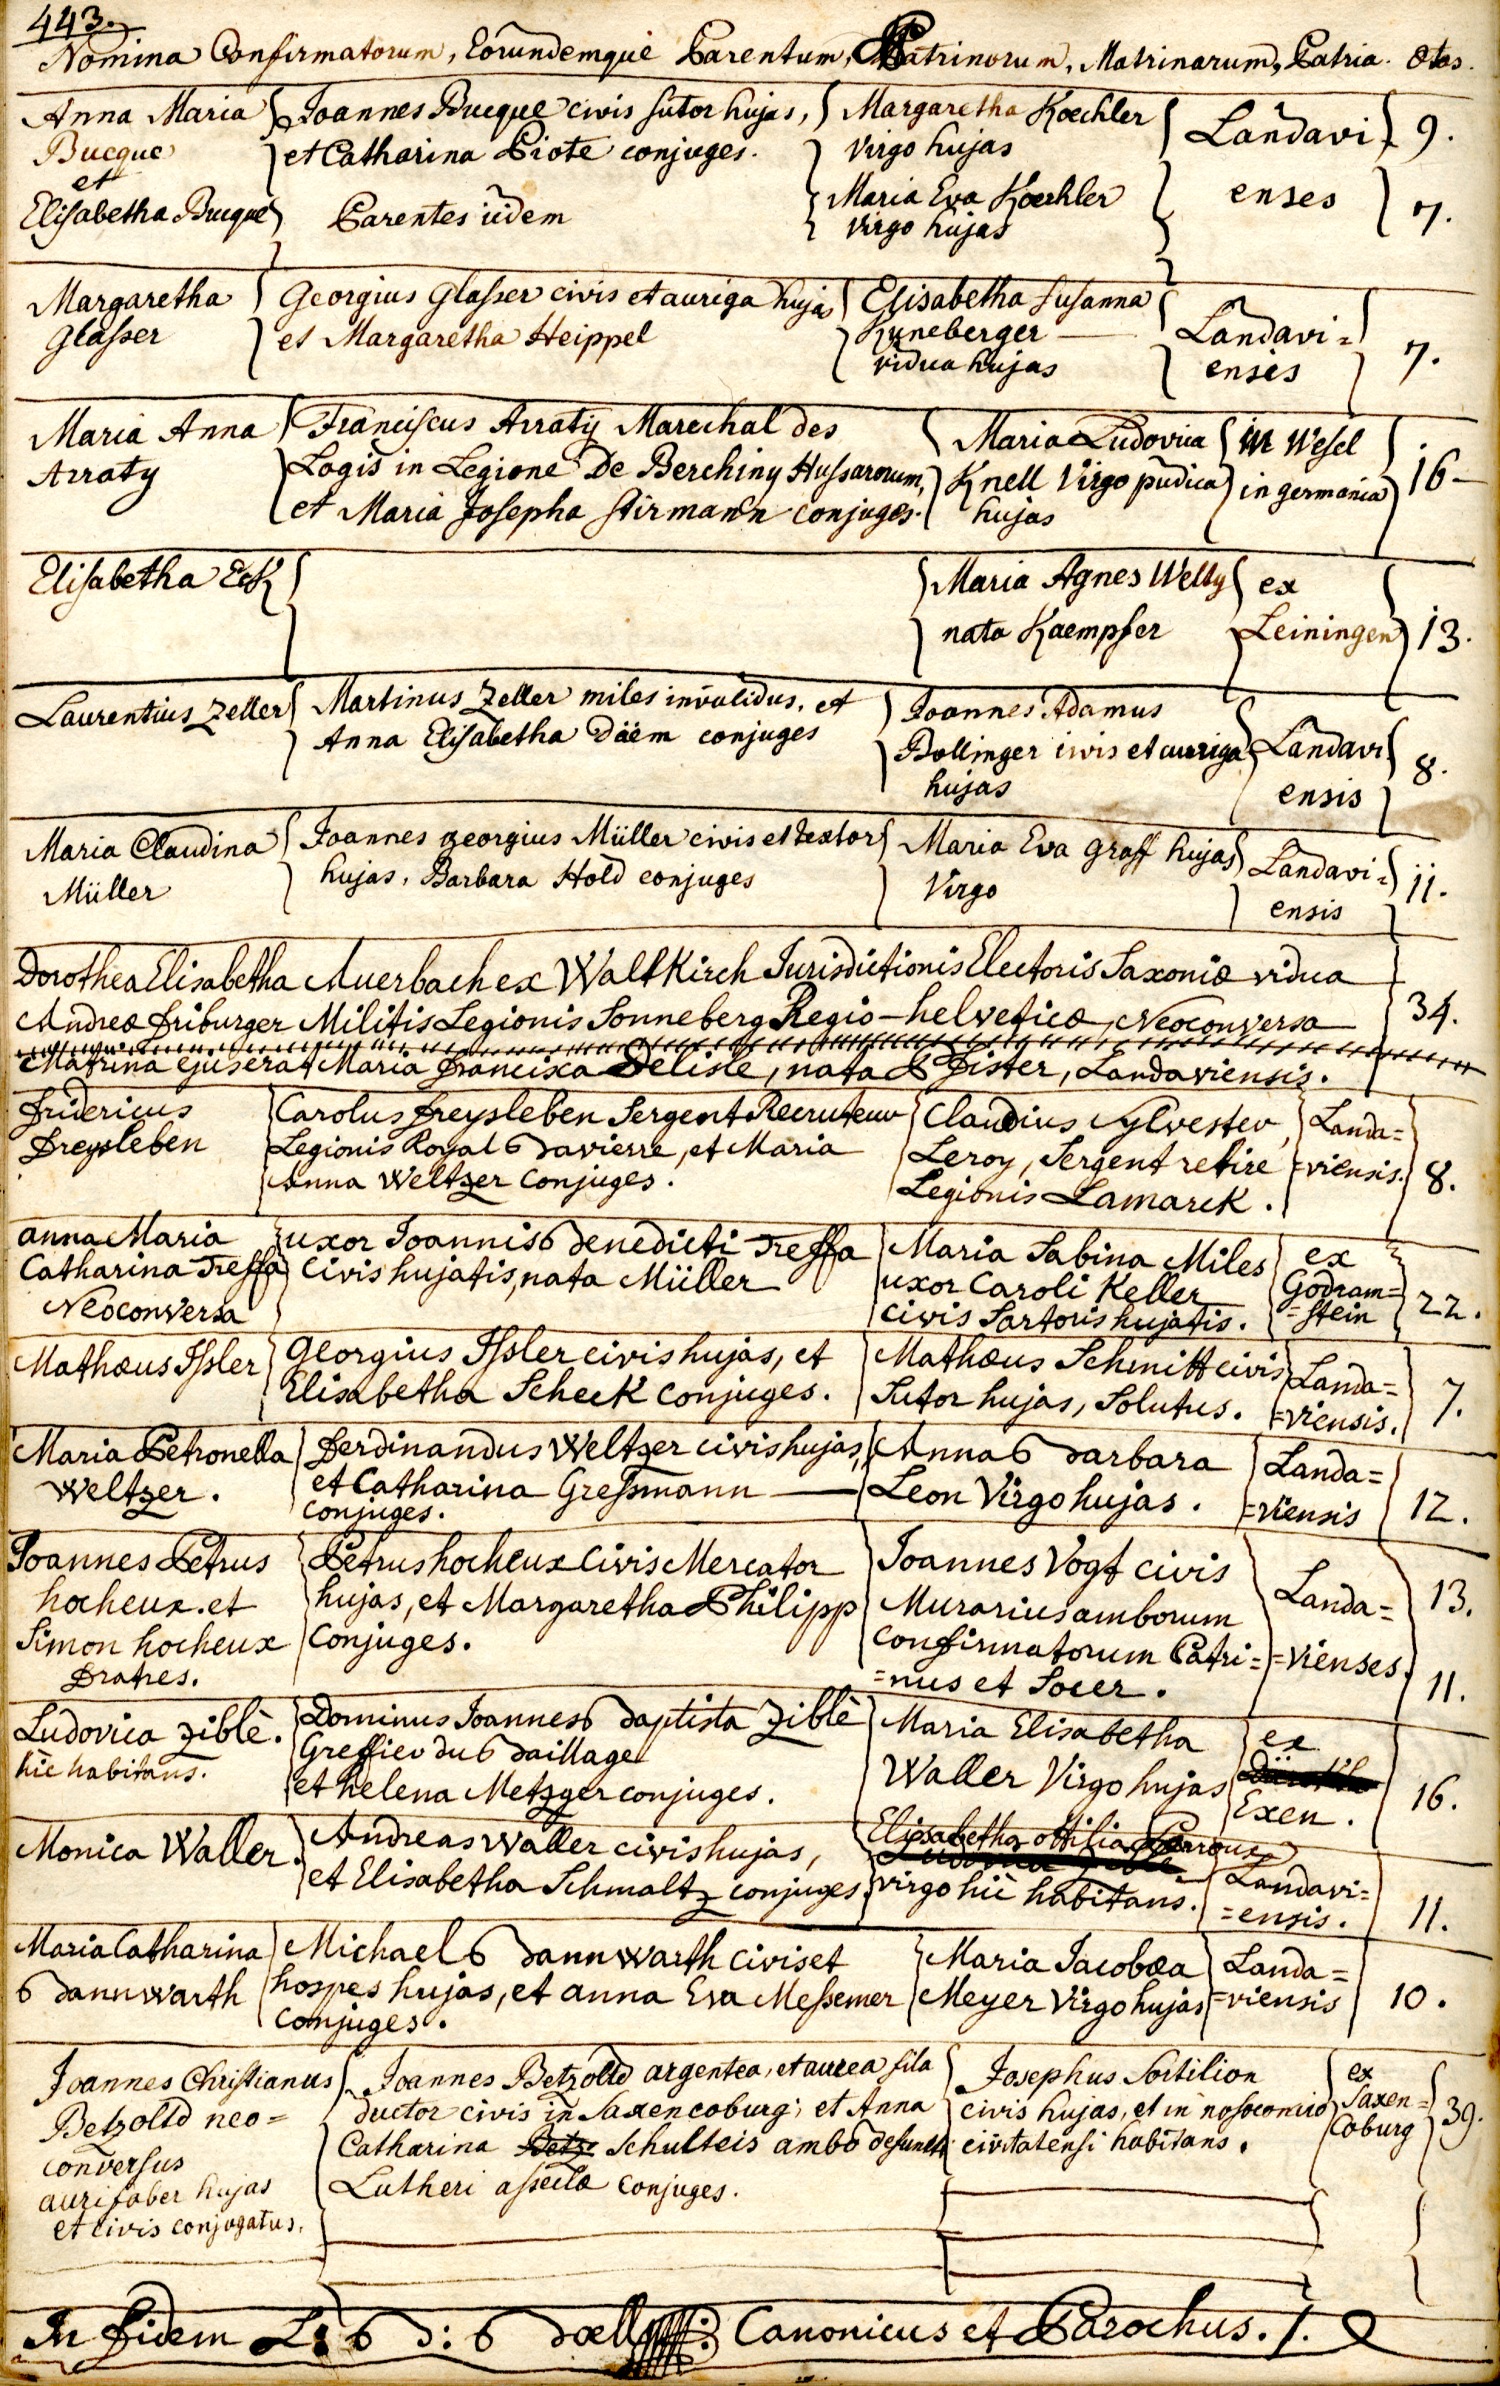 443.
Nomina Confirmatorum, Eorundemque Parentum, Patrinorum, Matrinarum, Patria. Ætas.
Anna Maria
Bucque
et
Elisabetha Bucque
Joannes Bucque civis sutor hujas,
et Catharina Piote conjuges.
Parentes iidem
Margaretha Koechler
virgo hujas
Maria Eva Koechler
virgo hujas
Landavi
enses
9.
7.
Margaretha
Glasser
Georgius Glasser civis et auriga hujas
et Margaretha Heippel
Elisabetha Susanna
Kuneberger
vidua hujas
Landavi=
ensis
7.
Maria Anna
Arraty
Franciscus Arraty Marechal des
Logis in Legione De Berchiny Hussarorum,
et Maria Josepha Stirmann conjuges.
Maria Ludovica
Knell Virgo pudica
hujas
in Wesel
in germania
16
Elisabetha Eck
Maria Agnes Welly
nata Kaempfer
ex
Leiningen
13.
Laurentius Zeller
Martinus Zeller miles invalidus, et
Anna Elisabetha Däem conjuges
Joannes Adamus
Bollinger civis et auriga
hujas
Landavi
ensis
8.
Maria Claudina
Müller
Joannes georgius Müller civis et textor
hujas, Barbara Hold conjuges
Maria Eva Graff hujas
Virgo
Landavi=
ensis
11.
Dorothea Elisabetha Auerbach ex Waltkirch Jurisdictionis Electoris Saxoniæ vidua
Andreæ Friburger Militis Legionis Sonneberg Regio-helveticæ, Neoconversa
34.
Matrina ejus erat Maria Francisca Delisle, nata Pfister, Landaviensis.
Fridericus
Freysleben
Carolus Freysleben Sergent Recruteur
Legionis Royal Bavierre, et Maria
Anna Weltzer conjuges.
Claudius Sylvester
Leroy, Sergent retire
Legionis Lamarck.
Landa=
=viensis.
8.
anna Maria
Catharina Treffa
Neoconversa
uxor Joannis Benedicti Treffa
Civis hujatis, nata Müller
Maria Sabina Miles
uxor Caroli Keller
civis Sartoris hujatis.
ex
Godram=
=stein
22.
Mathæus Issler
Georgius Issler civis hujas, et
Elisabetha Scheck conjuges.
Mathæus Schmitt civis
Sutor hujas, Solutus.
Landa=
=viensis.
7.
Maria Petronella
Weltzer.
Ferdinandus Weltzer civis hujas,
et Catharina Gressmann
conjuges.
Anna Barbara
Leon Virgo hujas.
Landa=
=viensis
12.
Joannes Petrus
hocheux. et
Simon hocheux
Fratres.
Petrus hocheux Civis Mercator
hujas, et Margaretha Philipp
Conjuges.
Joannes Vogt civis
Murarius amborum
confirmatorum Patri=
=nus et Socer.
Landa=
=vienses.
13.
11.
Ludovica Ziblè.
hic habitans.
Dominus Joannes Baptista Ziblè
Greffier du Baillage
et helena Metzger conjuges.
Maria Elisabetha
Waller Virgo hujas
ex
Exen.
16.
Monica Waller.
Andreas Waller civis hujas,
et Elisabetha Schmaltz conjuges.
Elisabetha ottilia Perroux
virgo hic habitans.
Landavi=
=ensis.
11.
Maria Catharina
Bannwarth
Michael Bannwarth civis et
hospes hujas, et anna Eva Messemer
conjuges.
Maria Jacobæa
Meyer Virgo hujas
Landa=
=viensis
10.
Joannes Christianus
Betzoltd neo=
conversus
aurifaber hujas
et civis conjugatus.
Joannes Betzoltd argentea, et aurea fila
ductor civis in Saxencoburg; et Anna
Catharina Betz Schulteis ambo defuncti
Lutheri asseclæ conjuges.
Josephus Sortilion
civis hujas, et in nosocomio
civitatensi habitans.
ex
Saxen=
Coburg
39.
In Fidem L: B D: B Canonicus et Parochus.